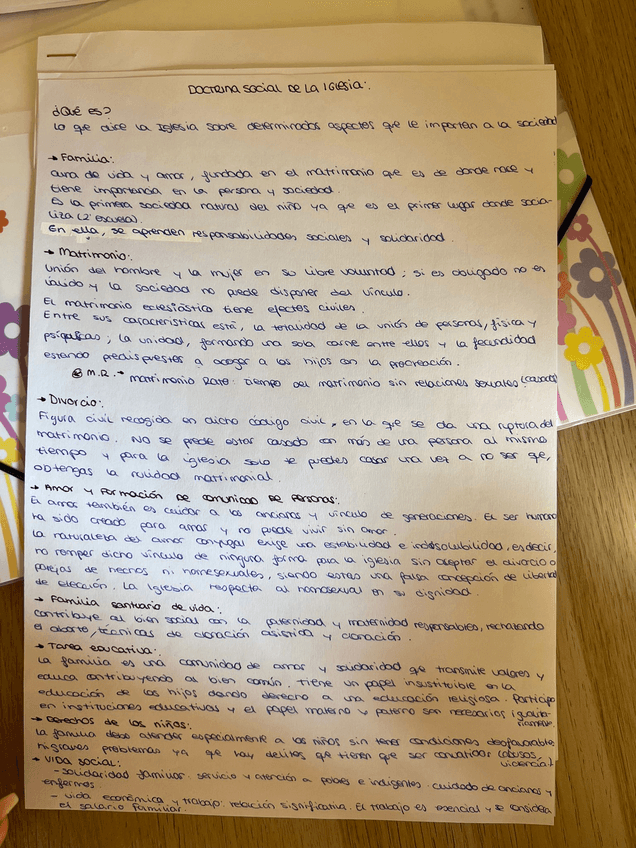 DOCTRINA SOCIAL DE LA IGLESIA:.
¿Qué es?
Lo qe dice la Iglesia sobre determinados aspectos qe le importan a la sociedad
→ Familia:.
de vida y amor, fundada en el matrimonio que es de donde nace y
tiene importancia en la persona y sociedad.
Es la primera sociedad natural del niño ya que es el primer lugar donde socia-
liza (2ª escuela).
En ella, se aprenden responsabilidades sociales y solidaridad.
→ Matrimonio:.
Unión del hombre y la mujer en su libre voluntad; si es obligado no es
válido y la sociedad no puede disponer del vínculo.
El matrimonio eclesiástico tiene efectos civiles.
Entre sus características está, la totalidad de la unión de personas, física y
psíquicas; la unidad, formando una sola carne entre ellos y la fecundidad
estando predispuestos a acoger a los hijos con la procreación.
M.R. → matrimonio Rato: tiempo del matrimonio sin relaciones sexuales (casados)
→ Divorcio:.
Figura civil recogida en dicho código civil, en la qe se da una ruptura del
matrimonio. No se puede estar casado con más de una persona al mismo
tiempo y para la iglesia solo te puedes casar una vez a no ser qe,
obtengas la nulidad matrimonial.
→ Amor y Formación de comunidad de personas:
El amor también es cuidar a los ancianos y vínculo de generaciones. El ser humano
ha sido creado para amar y no puede vivir sin amor.
La naturaleza del amor conyugal exige una estabilidad e indisolubilidad, es decir,
no romper dicho vínculo de ninguna forma para la iglesia sin aceptar el divorcio o
parejas de hechos ni homosexuales, siendo estas una falsa concepción de libertad
de elección. La Iglesia respecta al homosexual en su dignidad.
→ Familia santuario de vida:
Contribuye al bien social con la paternidad y maternidad responsables, rechazando
el aborto, técnicas de clonación y clonación.
→ Tarea educativa:
La familia es una comunidad de amor y solidaridad qe transmite valores y
educa contribuyendo al bien común. Tiene un papel insustituible en la
educación de los hijos dando derecho a una educación religiosa. Participa
en instituciones educativas y el papel materno y paterno son necesarios igualita-
riamente.
→ Derechos de los niños:
La familia debe atender especialmente a los niños sin tener condiciones desfavorables
ni graves problemas ya que hay delitos qe tienen que ser (abusos,
violencia)
→ Vida social:
- solidaridad familiar: servicio y atención a pobres e indigentes. cuidado de ancianos y
enfermos
- vida económica y trabajo: relación significativa. El trabajo es esencial y se considera
el salario familiar.